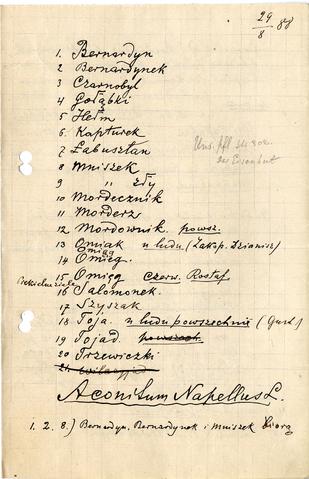 29/8 88
1. Bernardyn
2 Bernardynek
3 Czarnobyl
4 Gołąbki
5 Hełm
6. Kapturek
7 Łabusztan
8 Mniszek
9 " Zły
10 Mordecznik
11 Morderz
12 Mordownik powsz.
13 Omiak u ludu (Zakop. Dzianisz)
14 Omieg.
15 Omięg Czerw. Rostaf
16 Salomonek.
17 Szyszak
18 Toja u ludu powszechnie (Gust.)
19 Tojad. powszech
20 Trzewiczki
21
Aconitum Napellus L.
1. 2. 8.) Bernardyn, Bernardynek i Mniszek biorą